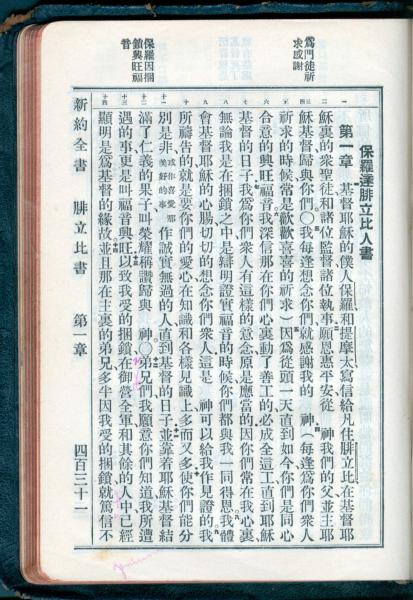 爲門徒祈
求感謝
保羅因捆
鎖興旺福
音
保羅達腓立比人書
第一章
一 二 三 四 五 六 七 八 九 十 十一 十二 十三 十四
基督耶穌的僕人保羅和提摩太寫信給凡住腓立比在基督耶
穌裏的衆聖徒和諸位監督諸位執事願恩惠平安從 神我們的父並主耶
穌基督歸與你們〇我每逢想念你們就感謝我的 神(每逢爲你們衆人
祈求的時候常是歡歡喜喜的祈求)因爲從頭一天直到如今你們是同心
合意的興旺福音我深信那在你們心裏動了善工的必成全這工直到耶穌
基督的日子我爲你們衆人有這樣的意念原是應當的因你們常在我心裏
無論我是在捆鎖之中是辯明證實福音的時候你們都與我一同得恩我體
會基督耶穌的心腸切切的想念你們衆人這是 神可以給我作見證的我
所禱吿的就是要你們的愛心在知識和各樣見識上多而又多使你們能分
別是非或作喜愛那美好的事作誠實無過的人直到基督的日子並靠着耶穌基督結
滿了仁義的果子叫榮耀稱讚歸與 神〇弟兄們我願意你們知道我所遭
遇的事更是叫福音興旺以致我受的捆鎖在御營全軍和其餘的人中已經
顯明是爲基督的緣故並且那在主裏的弟兄多半因我受的捆鎖就篤信不
新約全書 腓立比書 第一章 四百三十一